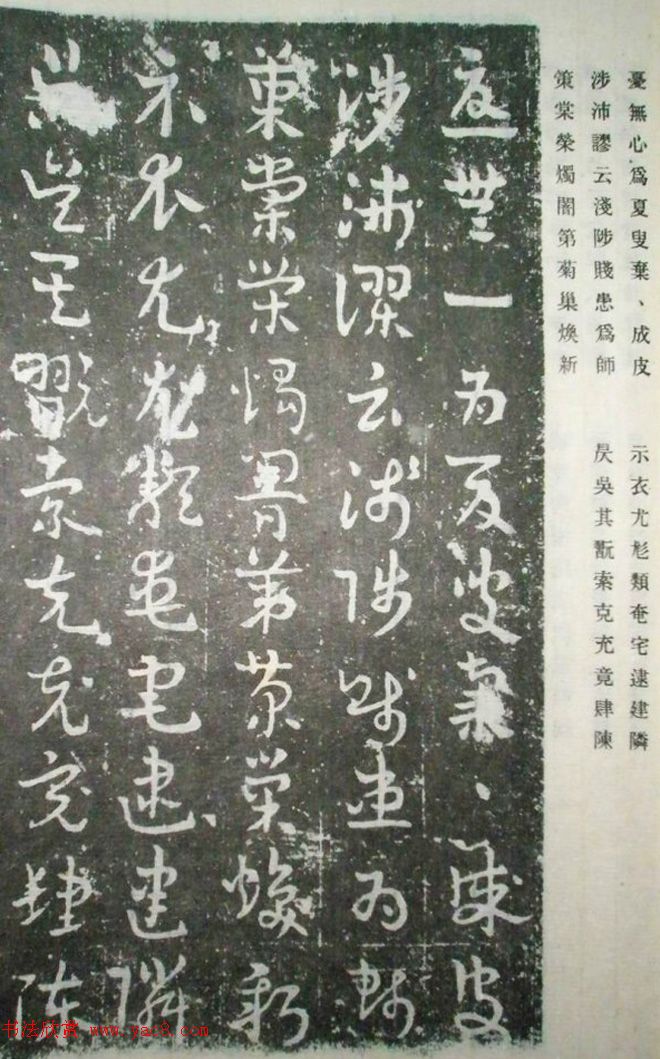 憂無心為夏叟棄、成皮
涉沛謬云淺陟賤患為師
策棠榮燭閣第菊巢煥新
示衣尤彪類奄宅逮建隣
昃吳其翫索克充竟肆陳
书法欣赏 www.yac8.com